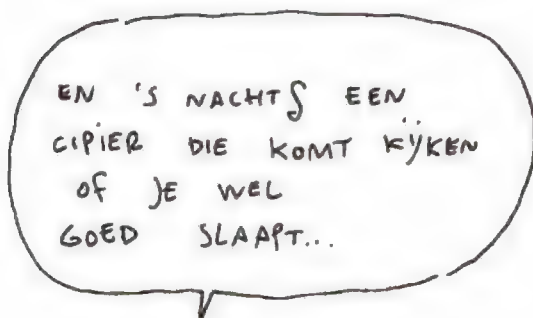 EN 'S NACHTS EEN
CIPIER DIE KOMT KIJKEN
OF JE WEL
GOED SLAAPT...